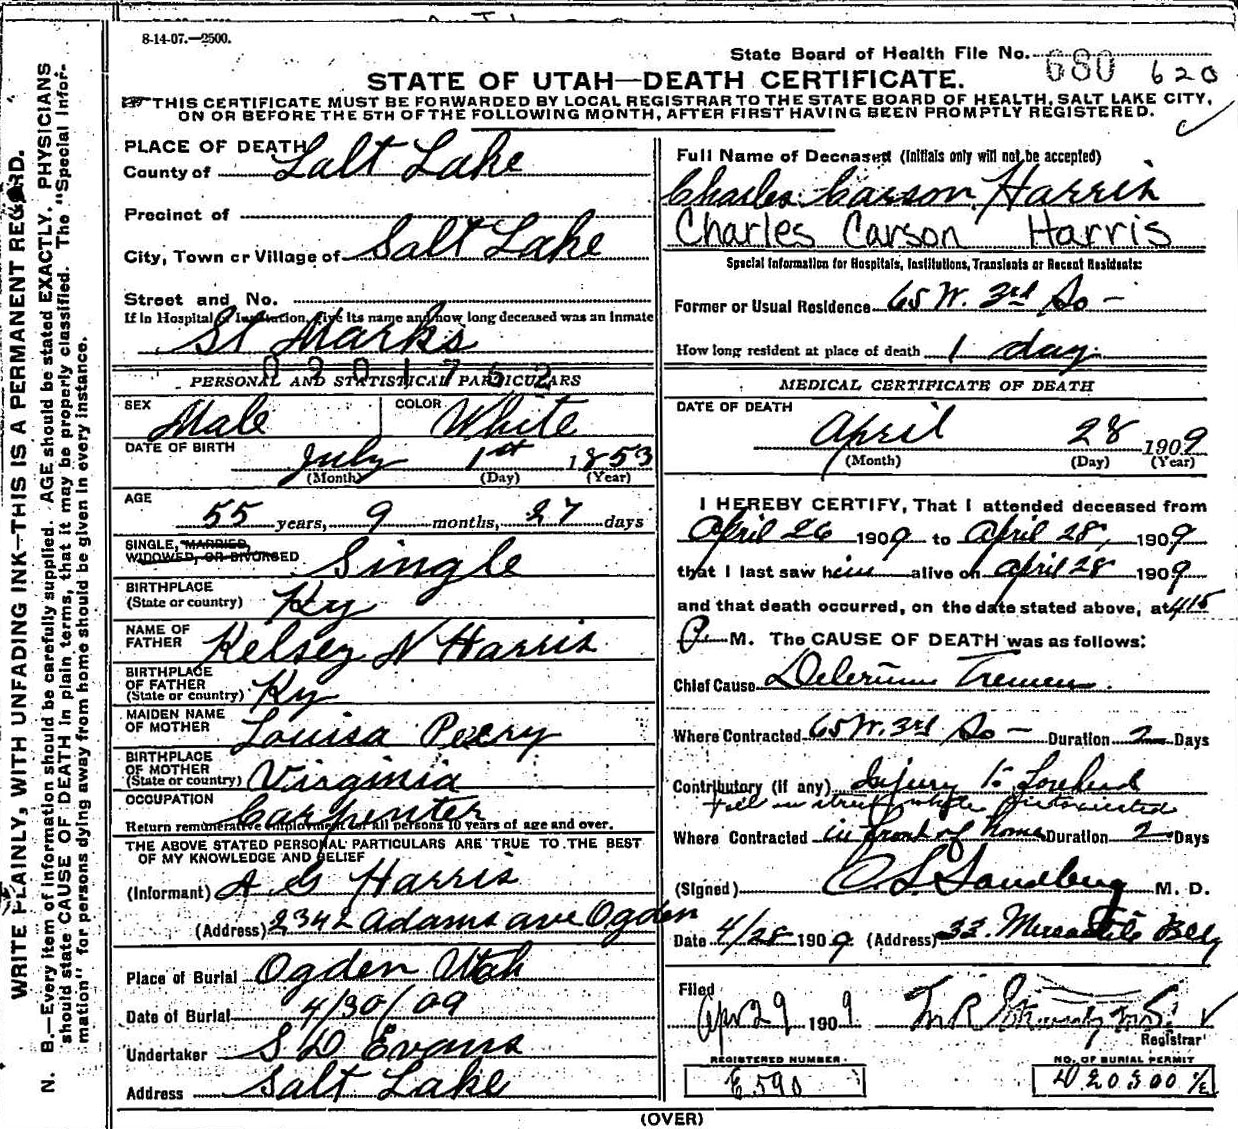 8-14-07.—2500.
State Board of Health File No. 680 620
STATE OF UTAH—DEATH CERTIFICATE.
THIS CERTIFICATE MUST BE FORWARDED BY LOCAL REGISTRAR TO THE STATE BOARD OF HEALTH, SALT LAKE CITY,
ON OR BEFORE THE 5TH OF THE FOLLOWING MONTH, AFTER FIRST HAVING BEEN PROMPTLY REGISTERED.
WRITE PLAINLY, WITH UNFADING INK—THIS IS A PERMANENT RECORD.
N. B.—Every item of information should be carefully supplied. AGE should be stated EXACTLY. PHYSICIANS
should state CAUSE OF DEATH in plain terms, that it may be properly classified. The "Special Infor-
mation" for persons dying away from home should be given in every instance.
PLACE OF DEATH
County of Salt Lake
Precinct of
City, Town or Village of Salt Lake
Street and No.
If in Hospital or Institution, give its name and how long deceased was an inmate
St Marks
0901752
PERSONAL AND STATISTICAL PARTICULARS
SEX Male COLOR White
DATE OF BIRTH July 1st 1853
(Month) (Day) (Year)
AGE
55 years, 9 months, 27 days
SINGLE, MARRIED,
WIDOWED, OR DIVORCED Single
BIRTHPLACE
(State or country) Ky
NAME OF
FATHER Kelsey N Harris
BIRTHPLACE
OF FATHER
(State or country) Ky
MAIDEN NAME
OF MOTHER Louisa Perry
BIRTHPLACE
OF MOTHER
(State or country) Virginia
OCCUPATION Carpenter
Return remunerative employment for all persons 10 years of age and over.
THE ABOVE STATED PERSONAL PARTICULARS ARE TRUE TO THE BEST
OF MY KNOWLEDGE AND BELIEF
(Informant) A G Harris
(Address) 2342 Adams ave Ogden
Place of Burial Ogden Utah
Date of Burial 4/30/09
Undertaker S D Evans
Address Salt Lake
Full Name of Deceased (Initials only will not be accepted)
Charles Carson Harris
Charles Carson Harris
Special Information for Hospitals, Institutions, Transients or Recent Residents:
Former or Usual Residence 65 W. 3rd So –
How long resident at place of death 1 day.
MEDICAL CERTIFICATE OF DEATH
DATE OF DEATH
April 28 1909
(Month) (Day) (Year)
I HEREBY CERTIFY, That I attended deceased from
April 26 1909 to April 28, 1909
that I last saw him alive on April 28 1909
and that death occurred, on the date stated above, at 4 15
P. M. The CAUSE OF DEATH was as follows:
Chief Cause Delerium Tremens.
Where Contracted 65 W. 3rd So – Duration 2 Days
Contributory (if any) Injury to Forehead
Fell in street while intoxicated
Where Contracted in front of home Duration 2 Days
(Signed) Sandberg M. D.
Date 4/28 1909 (Address) 33. Mercantile Bldg
Filed
Apr 29 1909
Registrar
REGISTERED NUMBER
E 590
NO. OF BURIAL PERMIT
D 20300 ½
(OVER)